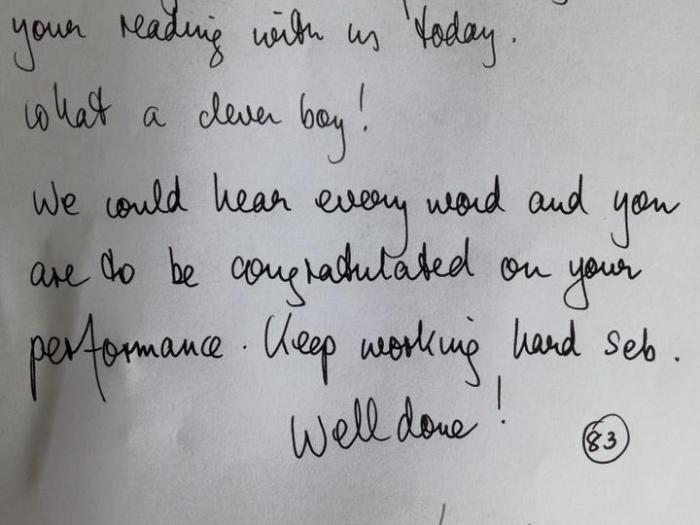 your reading with us today.
What a clever boy!
We could hear every word and you
are to be congratulated on your
performance. Keep working hard Seb.
Well done!
83